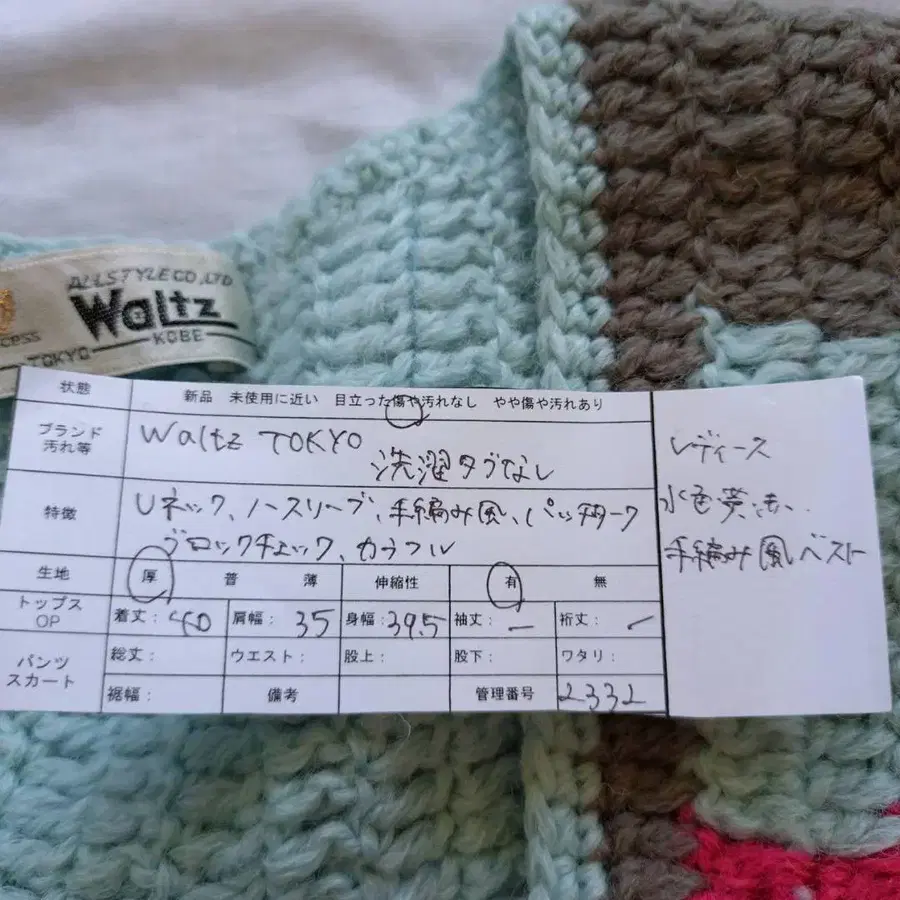 ALLSTYLE CO.,LTD
Waltz
KOBE
cess
TOKYO
状態 新品 未使用に近い 目立った傷や汚れなし やや傷や汚れあり
ブランド 汚れ等 Waltz TOKYO
洗濯タグなし
特徴 Uネック、ノースリーブ、手編み風、パッチワーク
ブロックチェック、カラフル
生地 厚 普 薄 伸縮性 有 無
トップス OP 着丈: 40 肩幅: 35 身幅: 39.5 袖丈: — 裄丈: —
パンツ スカート 総丈: ウエスト: 股上: 股下: ワタリ:
裾幅: 備考 管理番号 2332
レディース
水色
手編み風ベスト